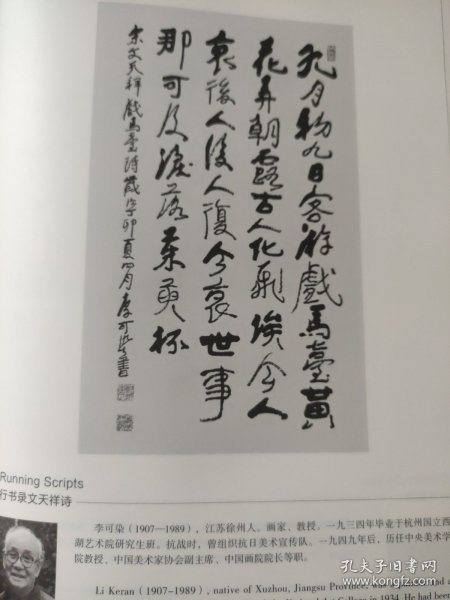 九月初九日客游戲馬臺黃
花弄朝露古人化飛埃今人
哀後人後人復今哀世事
那可及淚落茱萸杯
宋文天祥戲馬臺詩歲卯夏四月李可染書
Running Scripts
行书录文天祥诗
李可染（1907—1989），江苏徐州人。画家、教授。一九三四年毕业于杭州国立西
湖艺术院研究生班。抗战时，曾组织抗日美术宣传队。一九四九年后，历任中央美术学
院教授、中国美术家协会副主席、中国画院院长等职。
Li Keran (1907-1989), native of Xuzhou, Jiangsu Province
College in 1934. He had been
孔夫子旧书网